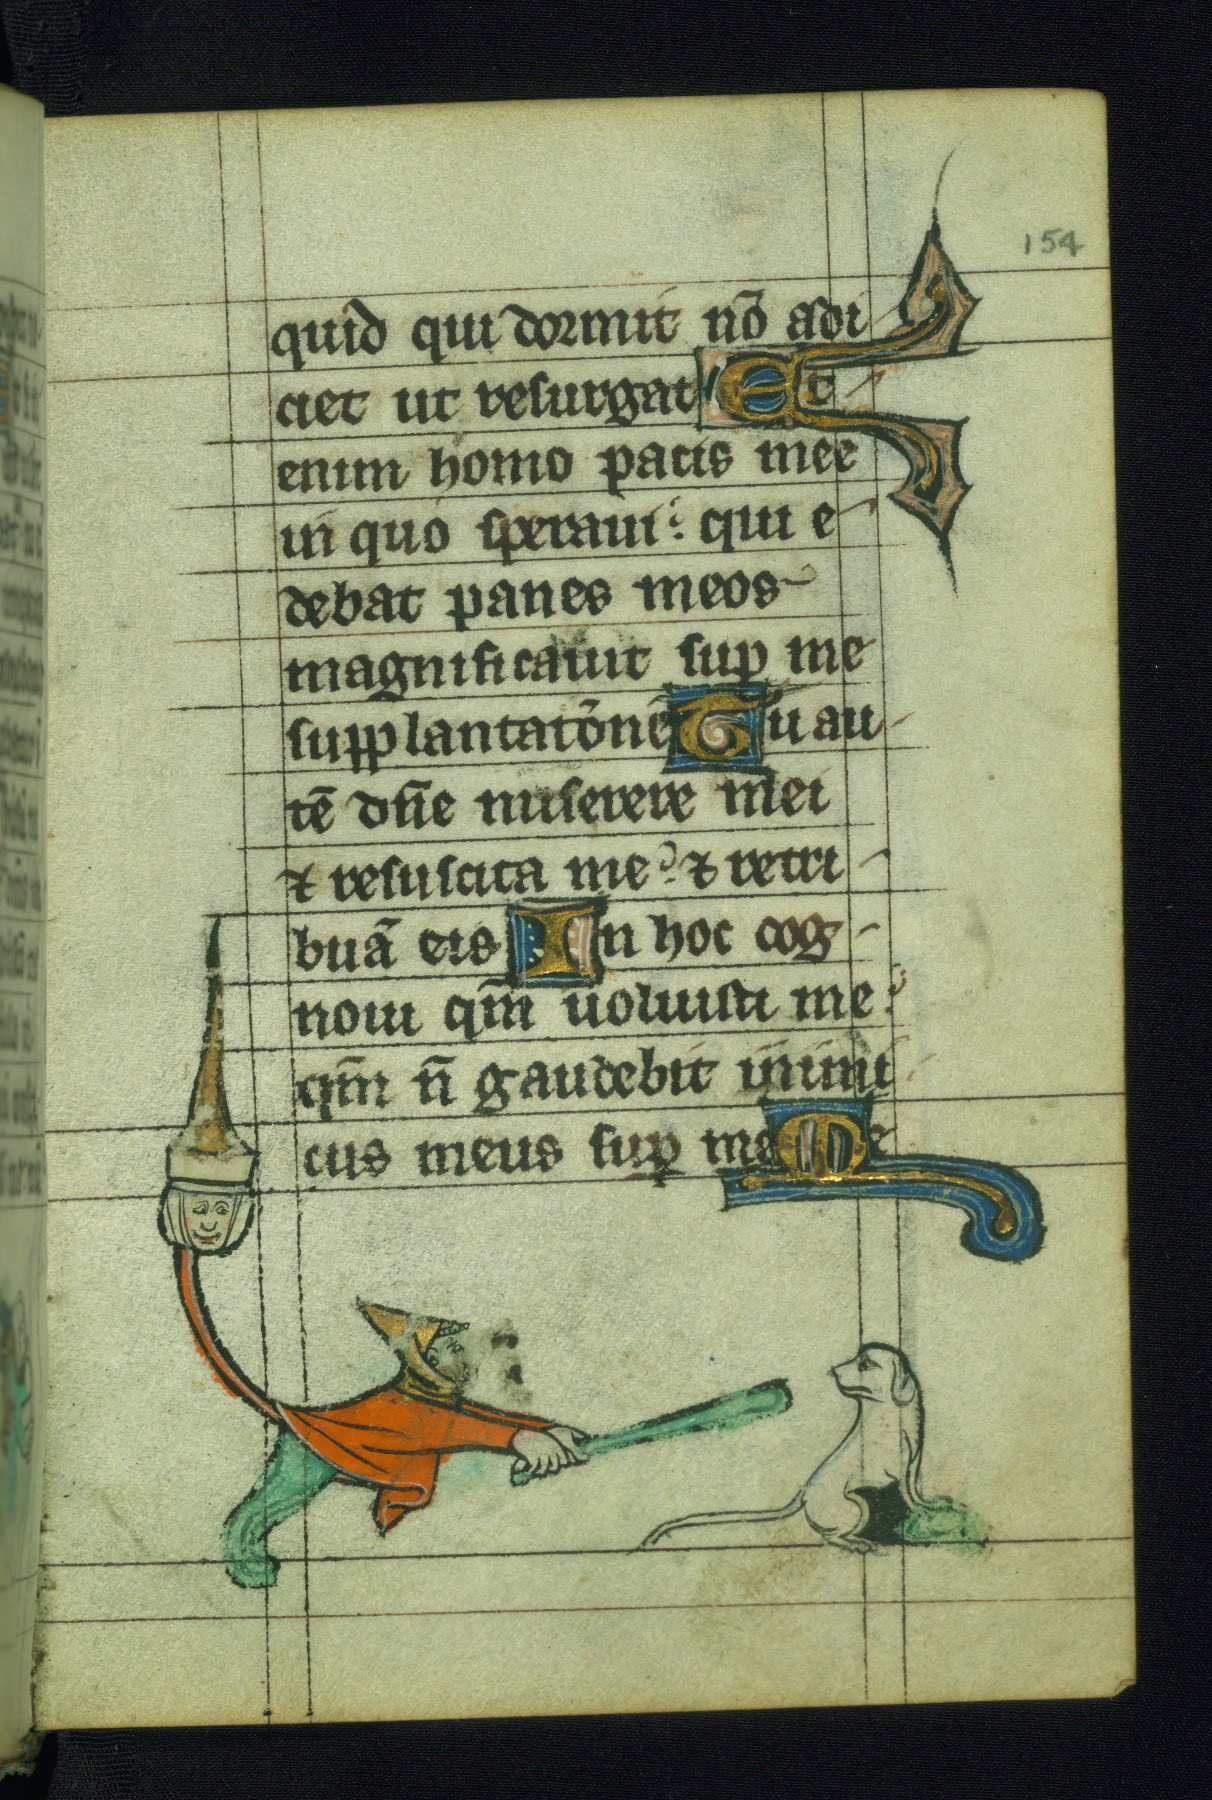 154
quid qui dormit nō adi
ciet ut resurgat Et
enim homo pacis mee
in quo speraui: qui e
debat panes meos
magnificauit sup me
supplantatōnē Tu au
tē dn̄e miserere mei
⁊ resuscita me: ⁊ retri
buā eis In hoc cog
noui qm̄ uoluisti me:
qm̄ n̄ gaudebit inimi
cus meus sup me Me